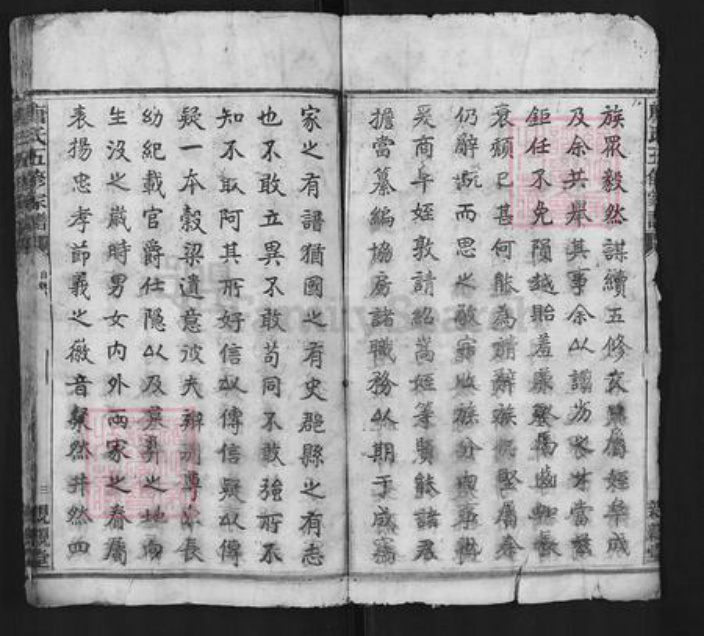 族眾毅然謀續五修房屬姪阜成
及余共舉其事余以譾劣之才當茲
鉅任不免隕越貽羞齒長
衰頹已甚何能為辭族堅屬余
仍辭既而思之敬宗收族分內事也
爰商午姪敦請紹嵩姪等賢能諸君
擔當纂編協房諸職務以期于成為
家之有譜猶國之有史郡縣之有志
也不敢立異不敢苟同不敢強所不
知不取阿其所好信以傳信疑以傳
疑一本穀梁遺意彼夫辨別尊卑長
幼紀載官爵仕隱以及葬之地向
生沒之歲時男女內外兩家之眷屬
表揚忠孝節義之徽音粲然井然而
氏五修家譜
三 親親堂
FamilySearch